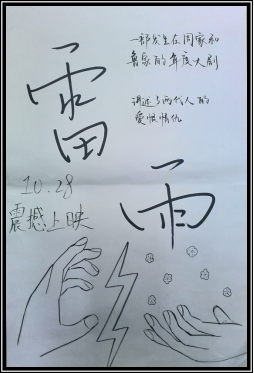 雷
雨
一部发生在周家和
鲁家的年度大剧
讲述了两代人的
爱恨情仇
10.28
震撼上映